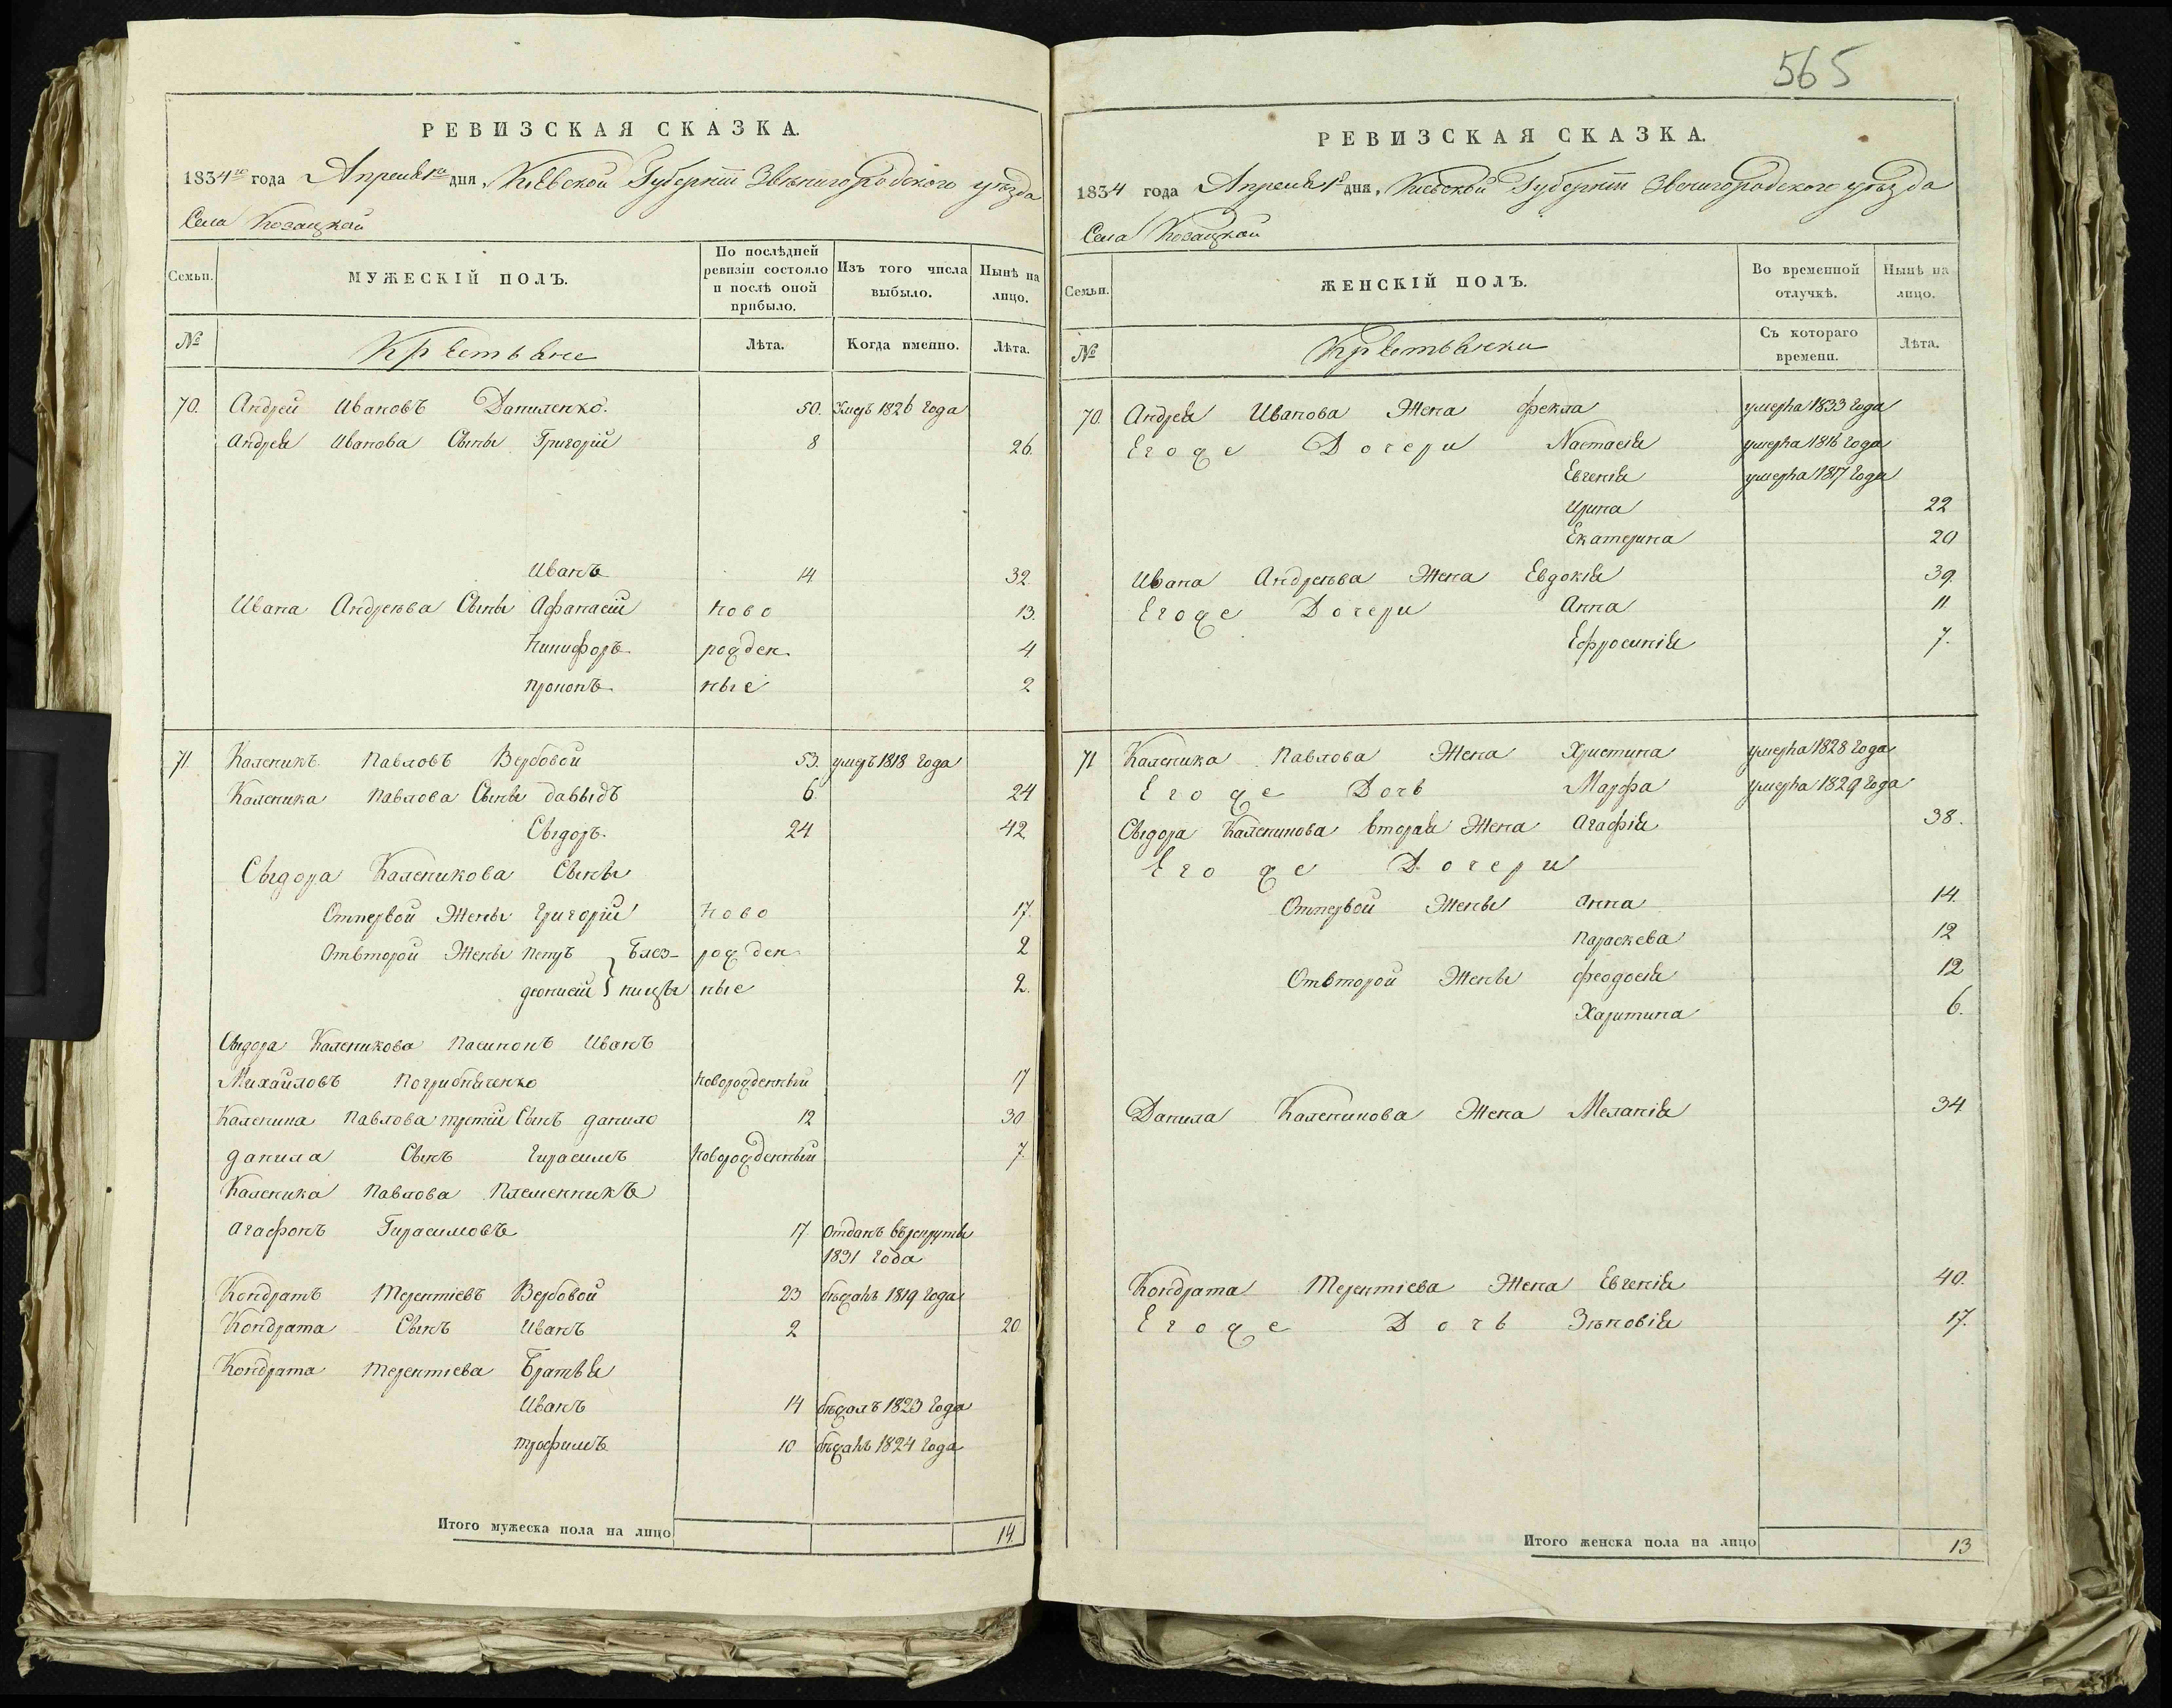 РЕВИЗСКАЯ СКАЗКА.
1834го года Апреля 1го дня, Кіевской Губерніи Звенигородского уѣзда
Села Козацкой
Семьи.
МУЖЕСКІЙ ПОЛЪ.
По послѣдней ревизіи состояло и послѣ оной прибыло.
Изъ того числа выбыло.
Нынѣ на лицо.
№
Крестьяне
Лѣта.
Когда именно.
Лѣта.
70. Андрей Ивановъ Даниленко. 50. Умеръ 1826 года
Андрея Иванова Сыны Григорій 8 26.
Иванъ 14 32
Ивана Андреѣва Сыны Афанасій ново 13.
Никифоръ рожден 4
Прокопъ ные 2
71 Каленикъ Павловъ Вербовой 53. умеръ 1818 года
Каленика Павлова Сыны Давыдъ 6. 24
Сыдоръ. 24 42
Сыдора Каленикова Сыны
Отпервой Жены Григорій ново 17.
Отвторой Жены Петръ близ- рожден 2
Діонисій ницы ные 2.
Сыдора Каленикова Пасинокъ Иванъ
Михайловъ Погрибниченко новорожденный 17
Каленика Павлова третій Сынъ Данило 12 30
Данила Сынъ Гирасимъ новорожденный 7.
Каленика Павлова Племенникъ
Агафонъ Гирасимовъ 17 Отданъ врекруты
1831 года
Кондратъ Терентіевъ Вербовой 23 бѣжалъ 1819 года
Кондрата Сынъ Иванъ 2 20
Кондрата Терентіева Братья
Иванъ 14 бѣжалъ 1823 года
Трофимъ 10 бѣжалъ 1824 года
Итого мужеска пола на лицо 14.
565
РЕВИЗСКАЯ СКАЗКА.
1834 года Апреля 1го дня, Кіевской Губерніи Звенигородского уѣзда
Села Козацкой
Семьи.
ЖЕНСКІЙ ПОЛЪ.
Во временной отлучкѣ.
Нынѣ на лицо.
№
Крестьянки
Съ котораго времени.
Лѣта.
70. Андрея Иванова Жена Фекла умерла 1833 года
Егоже Дочери Настасія умерла 1816 года
Евгенія умерла 1817 года
Ирина 22
Екатерина 20
Ивана Андреѣва Жена Евдокія 39.
Егоже Дочери Анна 11
Ефросинія 7.
71 Каленика Павлова Жена Христина умерла 1828 года
Егоже Дочь Марфа умерла 1829 года
Сыдора Каленикова вторая Жена Агафія 38.
Егоже Дочери
Отпервой Жены Анна 14.
Параскева 12
Отвторой Жены Феодосія 12
Харитина 6.
Данила Каленикова Жена Меланія 34
Кондрата Терентіева Жена Евгенія 40.
Егоже Дочь Зѣновія 17.
Итого женска пола на лицо 13